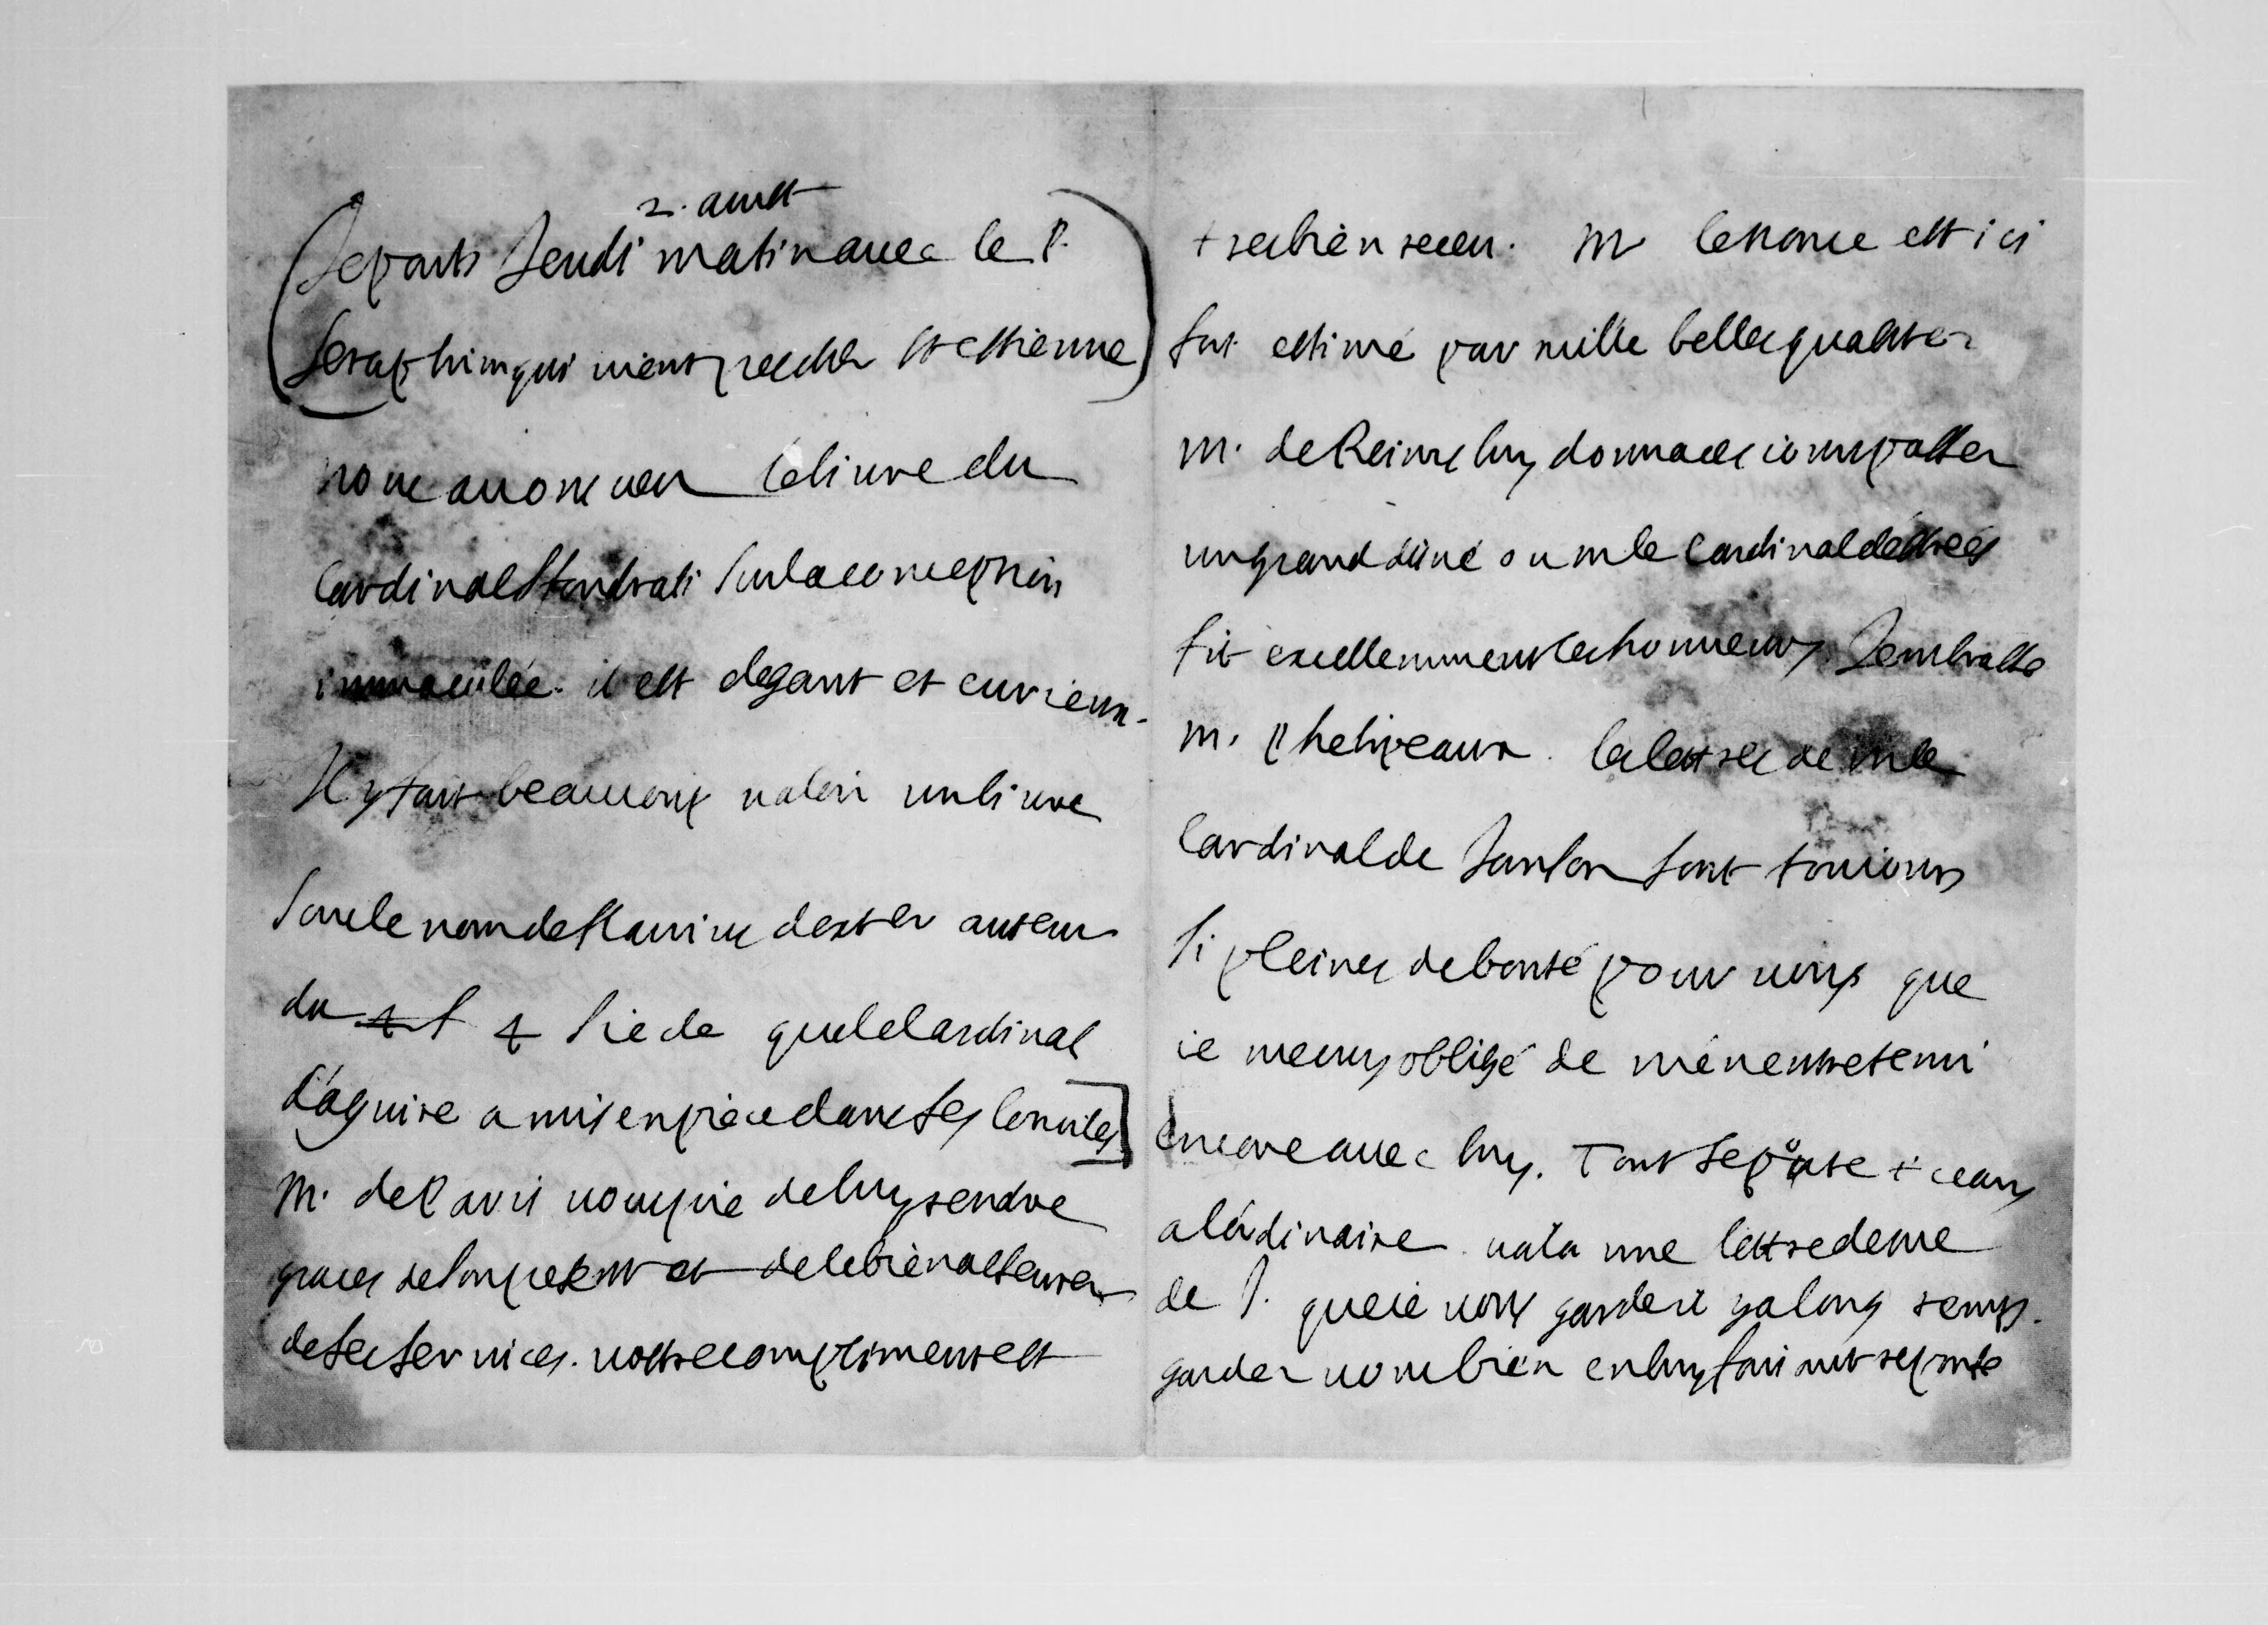 2. aust
Jeparts Jeudi matin auec le P.
Seraphim qui uient prescher St estienne
nous auons ueu le liure du
Cardinal Sfondrati sur la conception
immaculée. il est elegant et curieux.
Il y fait beaucoup ualoir un liure
sous le nom de flauius dexter auteur
du 4 siecle que le Cardinal
d'aguire a mis en piece dans ses Conciles
M. de Paris uous prie de luy rendre
graces de son present et de le bien asseurer
de ses seruices. uostre compliment est
tres bien receu. M le nonce est icy
fort estimé par mille belles qualitez
M. de Reims luy donna ces iours passez
un grand diné ou m le Cardinal d'éstreés
fit excellemment les honneurs. J embrasse
M. Phelipeaux. les lettres de m le
Cardinal de Janson sont touiours
si pleines de bonté pour uous que
ie me suis obligé de m'en entretenir
encore auec luy. Tout se porte ceans
a l'ordinaire. uoila une lettre de me
de P. que ie uous garde il y a long temps.
gardez uous bien en luy faisant reponse